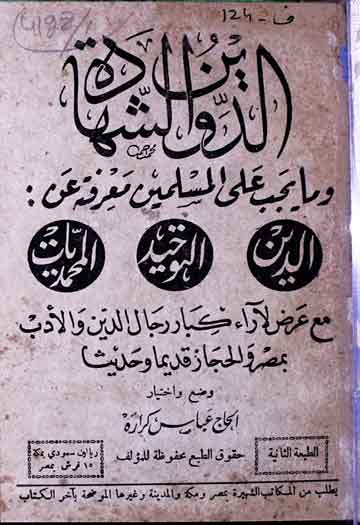 ف - 124
4198
الدين والشهادة
وما يجب على المسلمين معرفة عن :
الدين التوحيد المحمديات
مع عرض لآراء كبار رجال الدين والأدب
بمصر والحجاز قديما وحديثا
وضع واختيار
الحاج عباس كرارة
الطبعة الثانية
حقوق الطبع محفوظة للمؤلف
ريالين سعودي بمكة
١٥ قرش بمصر
يطلب من المكاتب الشهيرة بمصر ومكة والمدينة وغيرها الموضحة بآخر الكتاب